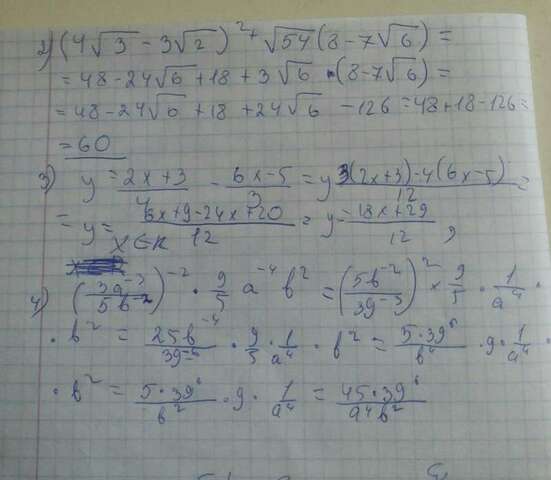 2) (4√3 - 3√2)² + √54 (8 - 7√6) =
= 48 - 24√6 + 18 + 3√6 · (8 - 7√6) =
= 48 - 24√6 + 18 + 24√6 - 126 = 48 + 18 - 126 =
= 60
3) y = (2x + 3)/4 - (6x - 5)/3 = y 3(2x + 3) - 4(6x - 5)/12 =
= y = (6x + 9 - 24x + 20)/12 = y - (18x + 29)/12 ,
x ∈ R
4) (3a⁻³/5b⁻²)⁻² · 9/5 a⁻⁴ b² = (5b⁻²/39⁻³)² × 9/5 · 1/a⁴ ·
· b² = 25b⁻⁴/39⁻⁶ · 9/5 · 1/a⁴ · b² = 5·39⁶/b⁴ · 9 · 1/a⁴ ·
· b² = 5·39⁶/b² · 9 · 1/a⁴ = 45·39⁶/a⁴b²